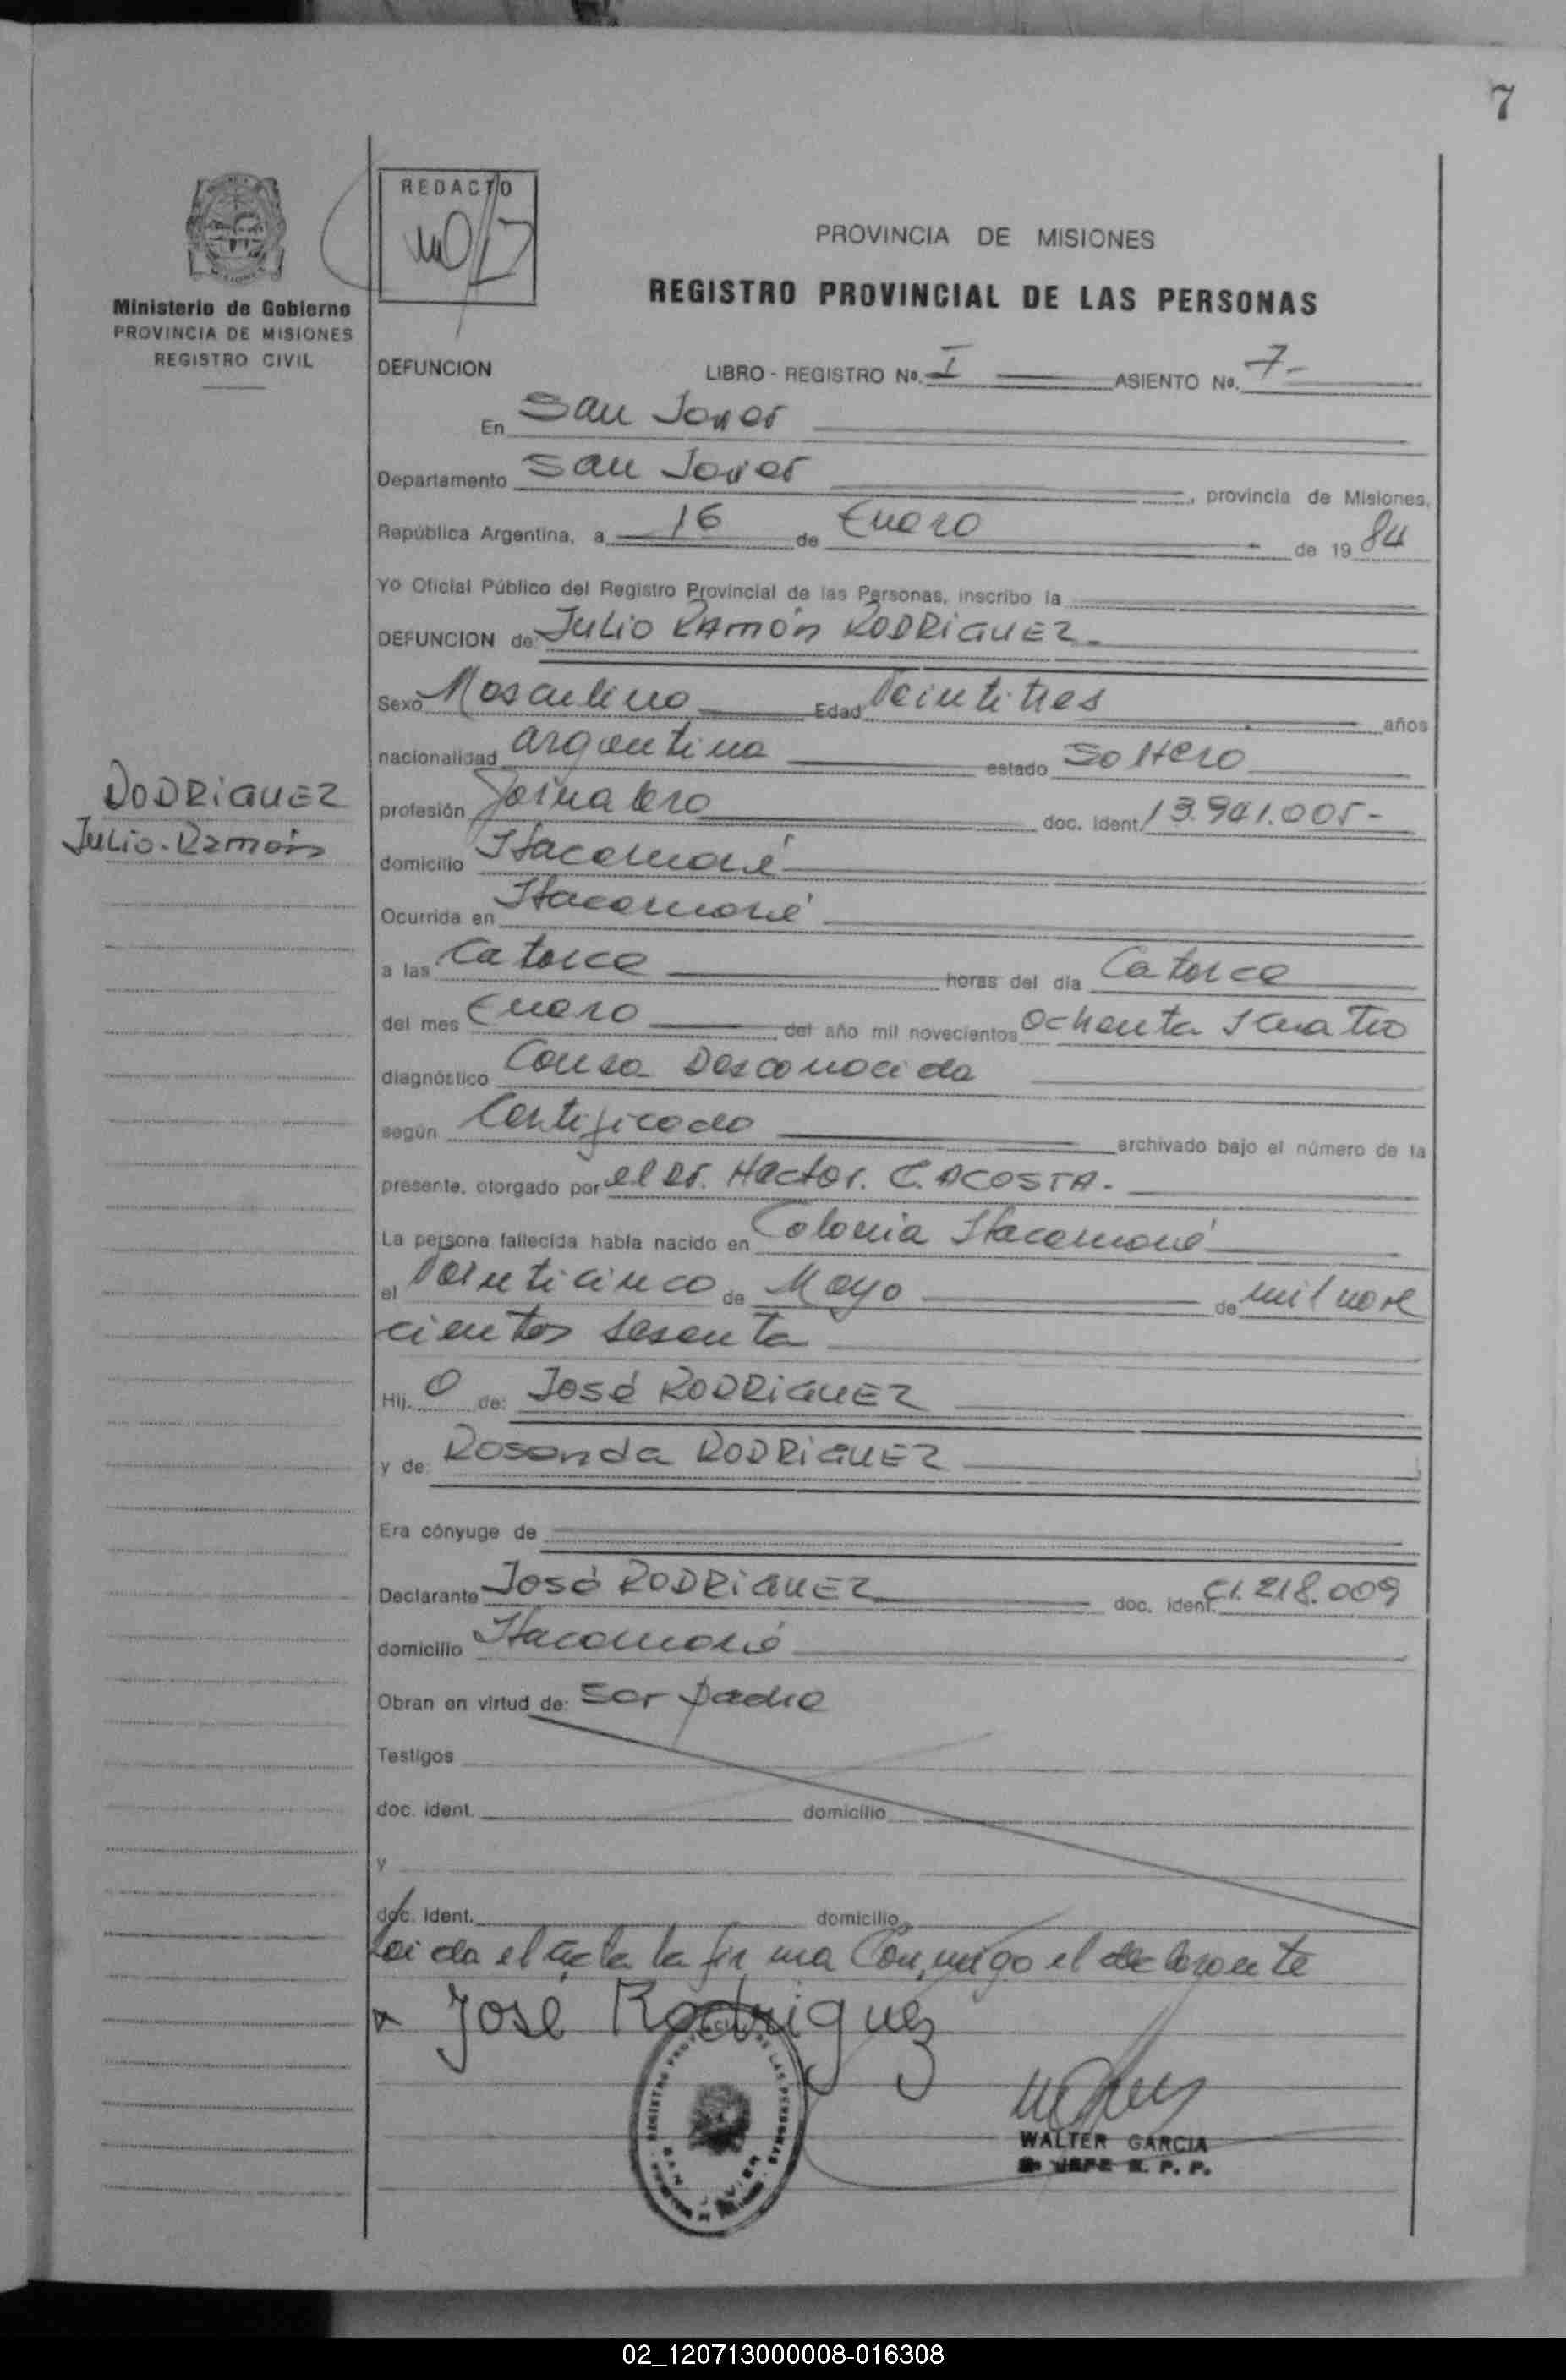 7
REDACTO
PROVINCIA DE MISIONES
REGISTRO PROVINCIAL DE LAS PERSONAS
Ministerio de Gobierno
PROVINCIA DE MISIONES
REGISTRO CIVIL
DEFUNCION LIBRO - REGISTRO No. I ASIENTO No. 7-
En San Javier
Departamento San Javier, provincia de Misiones,
República Argentina, a 16 de Enero de 1984
Yo Oficial Público del Registro Provincial de las Personas, inscribo la
DEFUNCION de: Julio Ramón RODRIGUEZ
Sexo Masculino Edad Veintitres años
nacionalidad argentina estado Soltero
RODRIGUEZ
Julio-Ramón
profesión Jornalero doc. ident. 13.941.005-
domicilio Itacaruaré
Ocurrida en Itacaruaré
a las Catorce horas del día Catorce
del mes Enero del año mil novecientos Ochenta y Cuatro
diagnóstico Causa Desconocida
según Certificado archivado bajo el número de la
presente, otorgado por el Dr. Hector. C. ACOSTA.
La persona fallecida había nacido en Colonia Itacaruaré
el Veinticinco de Mayo de mil nove
cientos sesenta
Hij o de: José RODRIGUEZ
y de: Rosenda RODRIGUEZ
Era cónyuge de
Declarante José RODRIGUEZ doc. ident. C.I. 218.009
domicilio Itacaruaré
Obran en virtud de: ser padre
Testigos
doc. ident. domicilio
y
doc. ident. domicilio
Leida el acta la firma Conmigo el declarante
José Rodriguez
WALTER GARCIA
JEFE R. P. P.
02_120713000008-016308